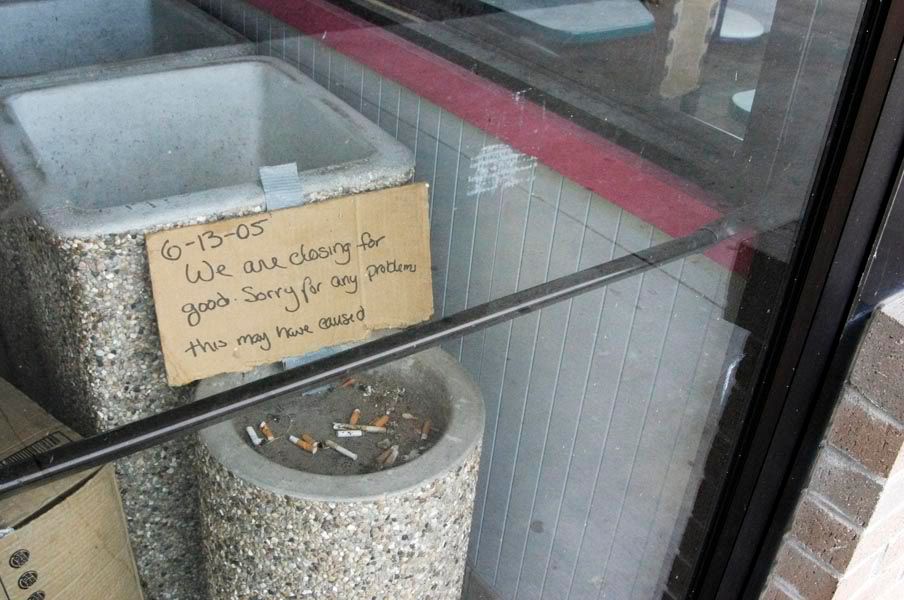 6-13-05
We are closing for
good. Sorry for any problems
this may have caused